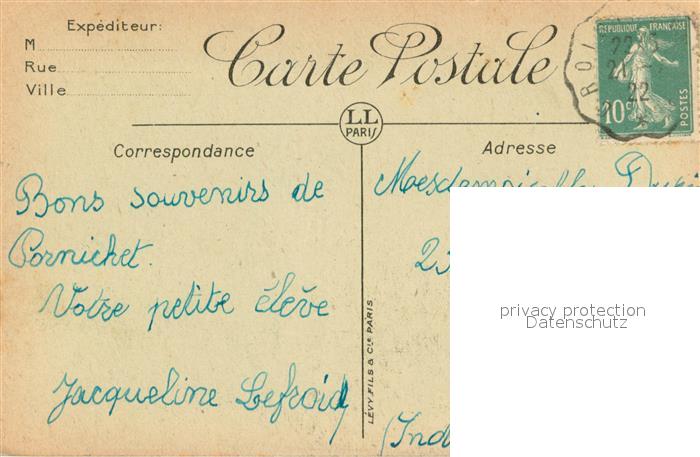 Expéditeur:
M
Rue
Ville
Carte Postale
RÉPUBLIQUE FRANÇAISE
10c
POSTES
22
21
22
LL
PARIS
Correspondance
Adresse
Bons souvenirs de
Pornichet.
Votre petite élève
Jacqueline Lefroid
LÉVY FILS & Cie PARIS
23
(Ind
privacy protection
Datenschutz